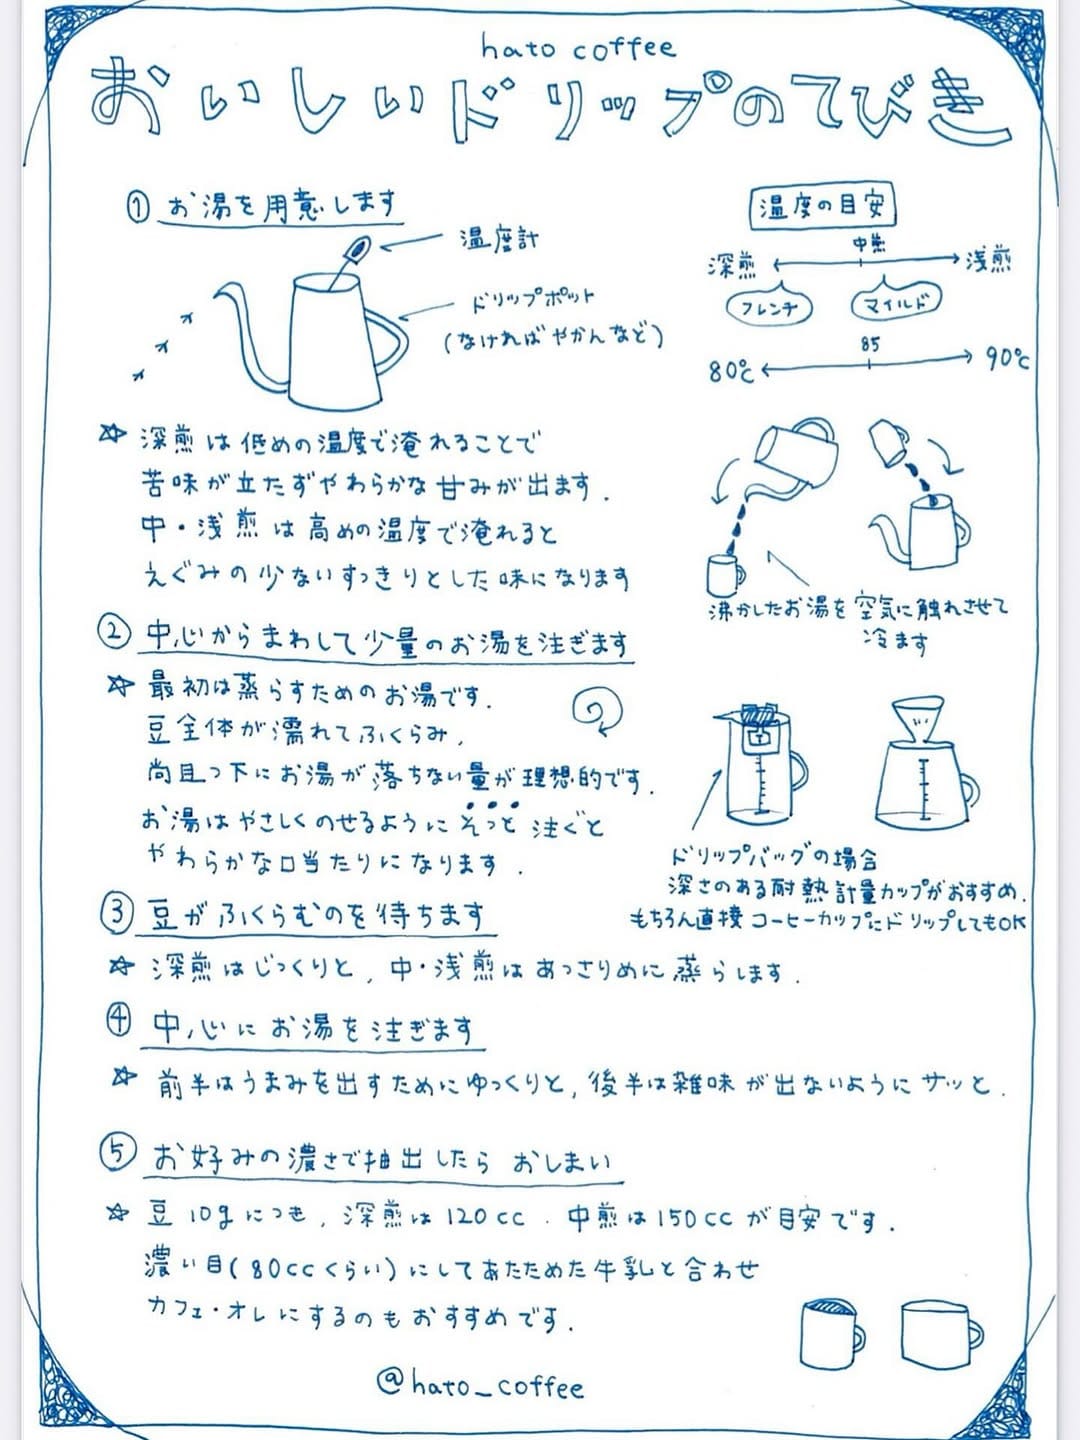 hato coffee
おいしいドリップのてびき
① お湯を用意します
温度計
ドリップポット
(なければやかんなど)
温度の目安
中煎
深煎
浅煎
フレンチ
マイルド
85
80℃
90℃
☆ 深煎は低めの温度で淹れることで
苦味が立たずやわらかな甘みが出ます.
中・浅煎は高めの温度で淹れると
えぐみの少ないすっきりとした味になります
沸かしたお湯を空気に触れさせて
冷ます
② 中心からまわして少量のお湯を注ぎます
☆ 最初は蒸らすためのお湯です.
豆全体が濡れてふくらみ,
尚且つ下にお湯が落ちない量が理想的です.
お湯はやさしくのせるようにそっと注ぐと
やわらかな口当たりになります.
ドリップバッグの場合
深さのある耐熱計量カップがおすすめ.
もちろん直接コーヒーカップにドリップしてもOK
③ 豆がふくらむのを待ちます
☆ 深煎はじっくりと, 中・浅煎はあっさりめに蒸らします.
④ 中心にお湯を注ぎます
☆ 前半はうまみを出すためにゆっくりと, 後半は雑味が出ないようにサッと.
⑤ お好みの濃さで抽出したら おしまい
☆ 豆10gにつき, 深煎は120cc. 中煎は150ccが目安です.
濃い目(80ccくらい)にしてあたためた牛乳と合わせ
カフェ・オレにするのもおすすめです.
@hato_coffee